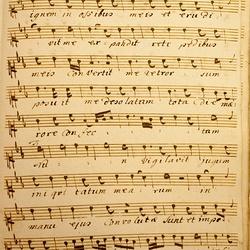 ignem in ossibus meis et erudi
vit me ex pandit rete pedibus
meis Convertit me retror sum
posuit me desolatam tota die mæ
rore Confec tam
n Vigilavit jugum
ini qui tatum mea rum in
manu ejus Convolutæ sunt et impo